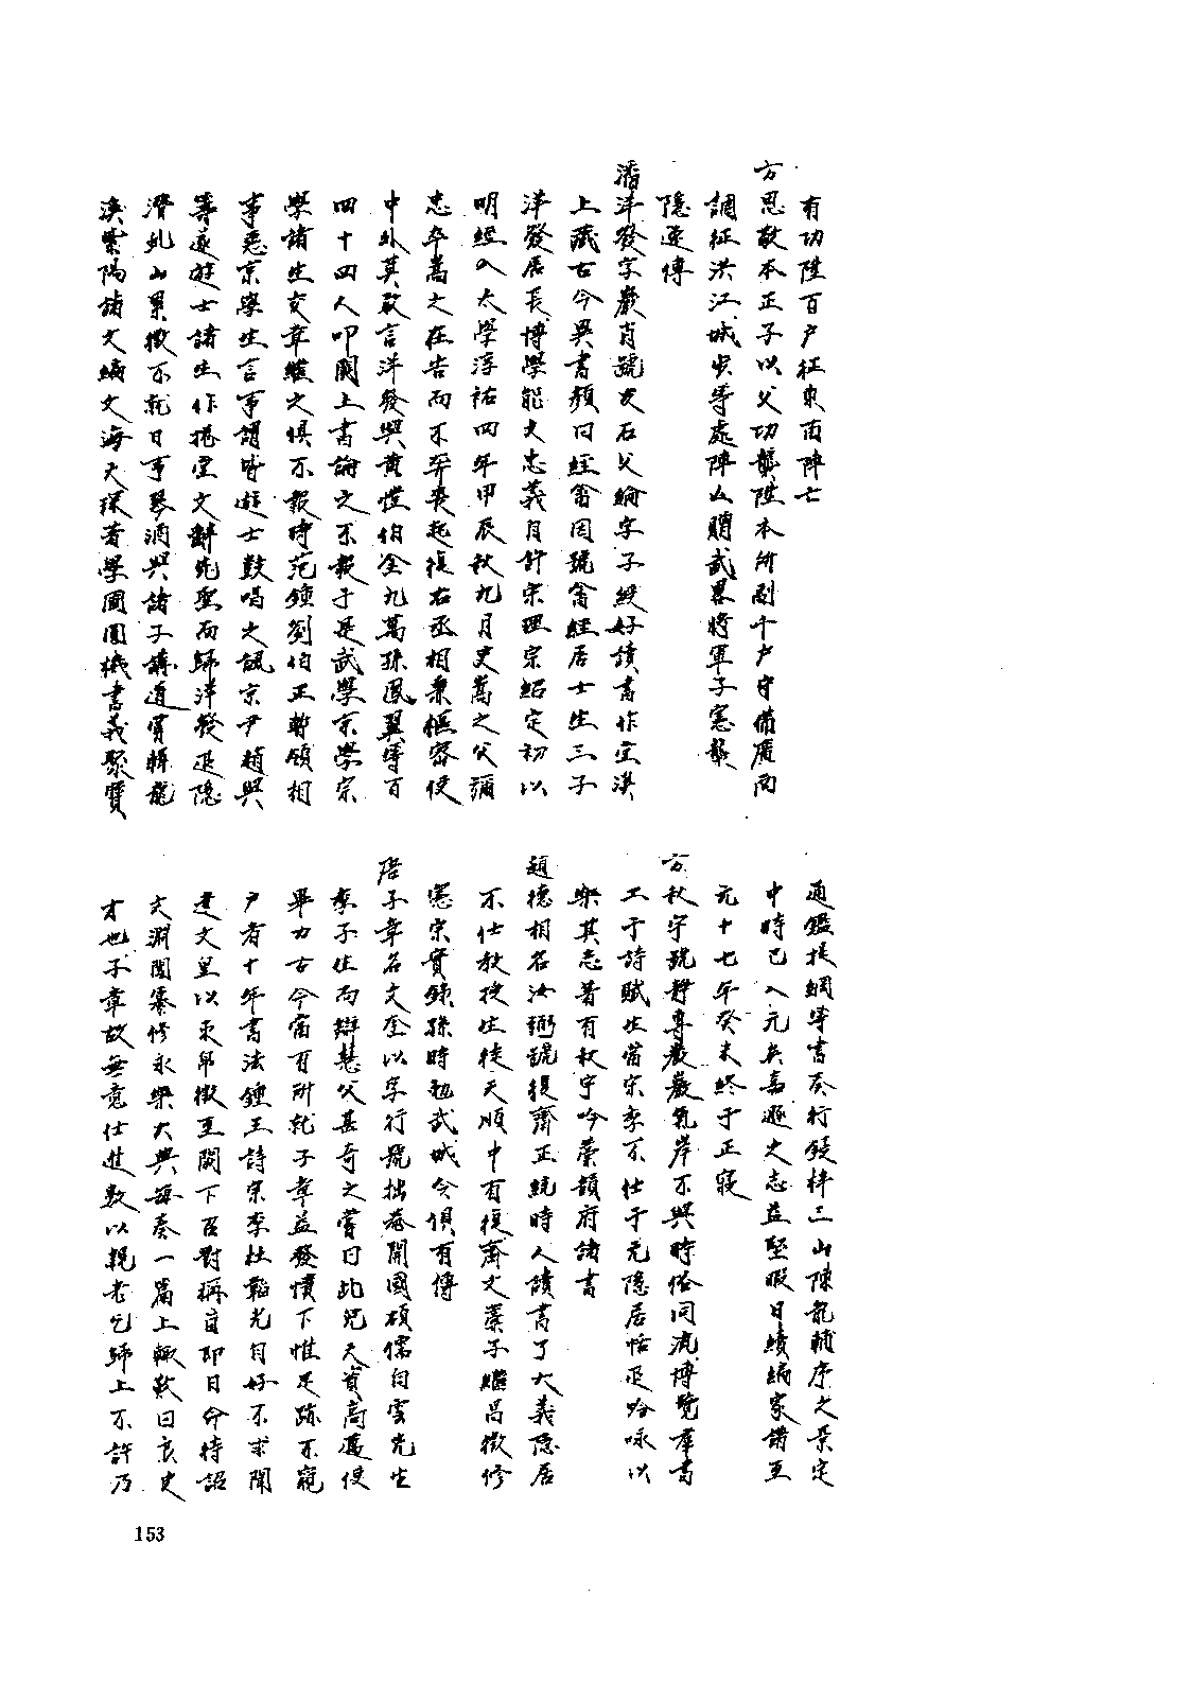 有功陞百户征東南陣亡
方思敬本正子以父功襲陞本所副千户守備廣西
調征洪江城虫等處陣亡贈武畧將軍子憲襲
隱逸傳
潘洋發字嚴肖號友石父綸字子綬好讀書作室溪
上藏古今異書顏曰經畬因號畬經居士生三子
洋發居長博學能文忠義自許宋理宗紹定初以
明經入太學淳祐四年甲辰秋九月史嵩之父彌
忠卒嵩之在告而不奔喪起復右丞相兼樞密使
中外莫敢言洋發與黄愷伯金九萬孫鳳翼等百
四十四人叩閽上書論之不報于是武學京學宗
學諸生交章繼之俱不報時范鍾劉伯正暫領相
事惡京學生言事謂皆遊士鼓唱之諷京尹趙與
等逐遊士諸生作捲堂文辭先聖而歸洋發退隱
濟軋山累徵不就日事琴酒與諸子講道實輯龍
溪紫陽諸文編文海天球著學圃園機書義聚寶
通鑑提綱等書奏行鋟梓三山陳龍輔序之景定
中時已入元矣嘉遯之志益堅暇日續編家譜至
元十七年癸未終于正寢
方秋宇號靜專巖巖氣岸不與時俗同流博覽羣書
工于詩賦生當宋季不仕于元隱居恬退吟咏以
樂其志著有秋宇吟藁韻府諸書
趙德相名汝弼號復齋正統時人讀書了大義隱居
不仕教授生徒天順中有復齋文藁子繼昌徵修
憲宗實錄孫時勉武城令俱有傳
唐子章名文奎以字行號拙菴開國碩儒白雲先生
季子生而辯慧父甚奇之嘗曰此兒天資高邁使
畢力古今當有所就子章益發憤下惟足跡不窺
户者十年書法鍾王詩宗李杜韜光自好不求聞
達文皇以束帛徵至闕下召對稱旨即日命待詔
文淵閣纂修永樂大典每奏一篇上輒歎曰良史
才也子章故無意仕進數以親老乞歸上不許乃
153